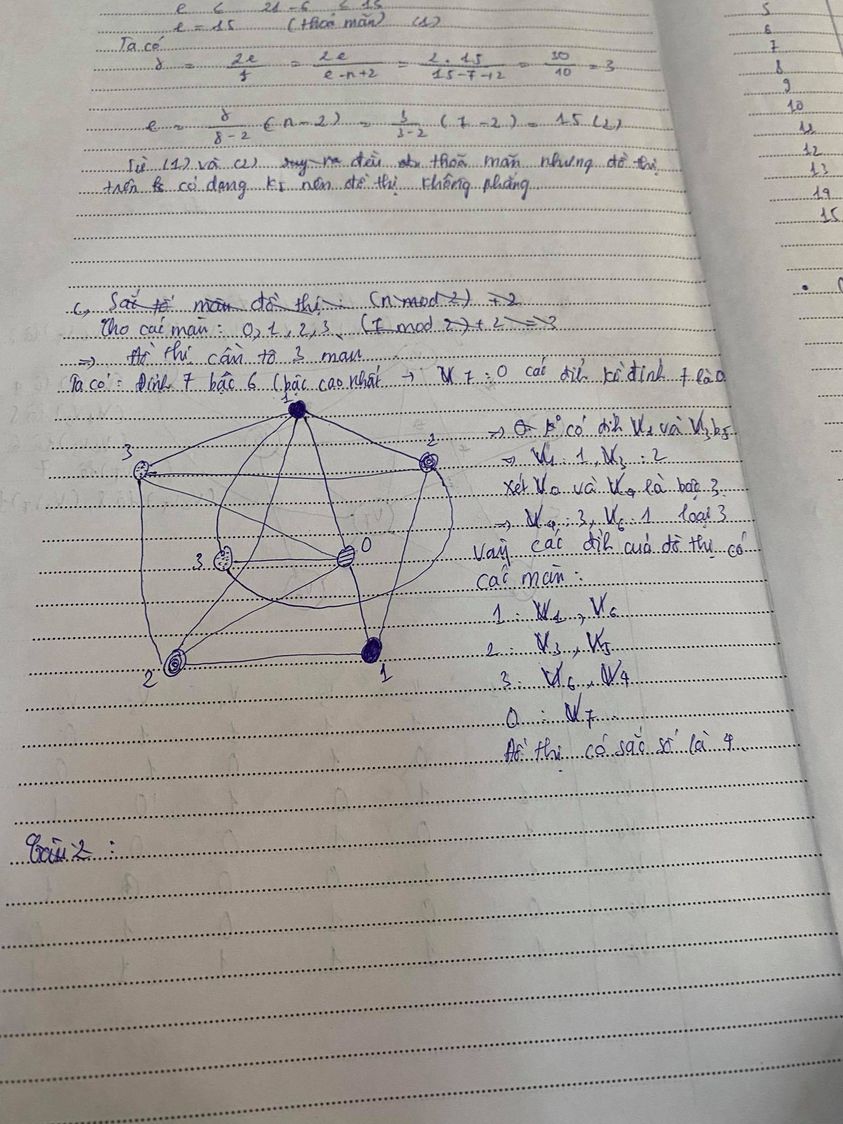 e ≤ 21 - 6 ≤ 15
e = 15 (thoả mãn) (1)
Ta có
γ = 2e/f = 2e/(e-n+2) = 2.15/(15-7+2) = 30/10 = 3
e = γ/(γ-2) (n-2) = 3/(3-2) (7-2) = 15 (2)
Từ (1) và (2) suy ra đều thoã mãn nhưng đồ thị
trên có dạng k5 nên đồ thị không phẳng
c, Sắc số màu đồ thị: (n mod 2) + 2
Cho các màu: 0, 1, 2, 3 (7 mod 2) + 2 = 3
=> đồ thị cần tô 3 màu
Ta có: đỉnh 7 bậc 6 (bậc cao nhất → V7: 0 các đỉnh kề đỉnh 7 là 0
→ có đỉnh V1 và V3 b5
→ V1: 1, V3: 2
Xét và là bậc 3
→ V4: 3, V6: 1 loại 3
Vậy các đỉnh của đồ thị có
các màu:
1: V1, V6
2: V3, V5
3: V6, V4
0: V7
Đồ thị có sắc số là 4
1
3
2
3
0
2
1
Câu 2:
5
6
7
8
9
10
11
12
13
14
15